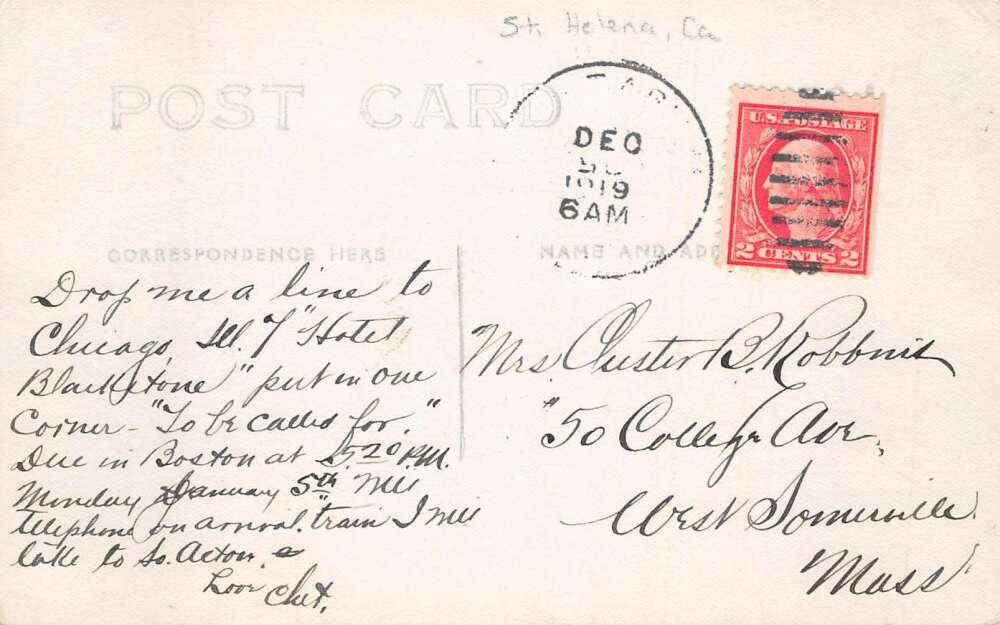 St. Helena, Ca
POST CARD
DEC
1919
6 AM
U.S. POSTAGE
2 CENTS 2
CORRESPONDENCE HERE
NAME AND ADD
Drop me a line to
Chicago, Ill. "Hotel
Blackstone" put in one
Corner - "To be called for."
Due in Boston at 5.20 P.M.
Monday January 5th Will
telephone on arrival. train I will
take to So. Acton.
Love Chet.
Mrs Chester B. Robbins
"50 College Ave,
West Somerville
Mass